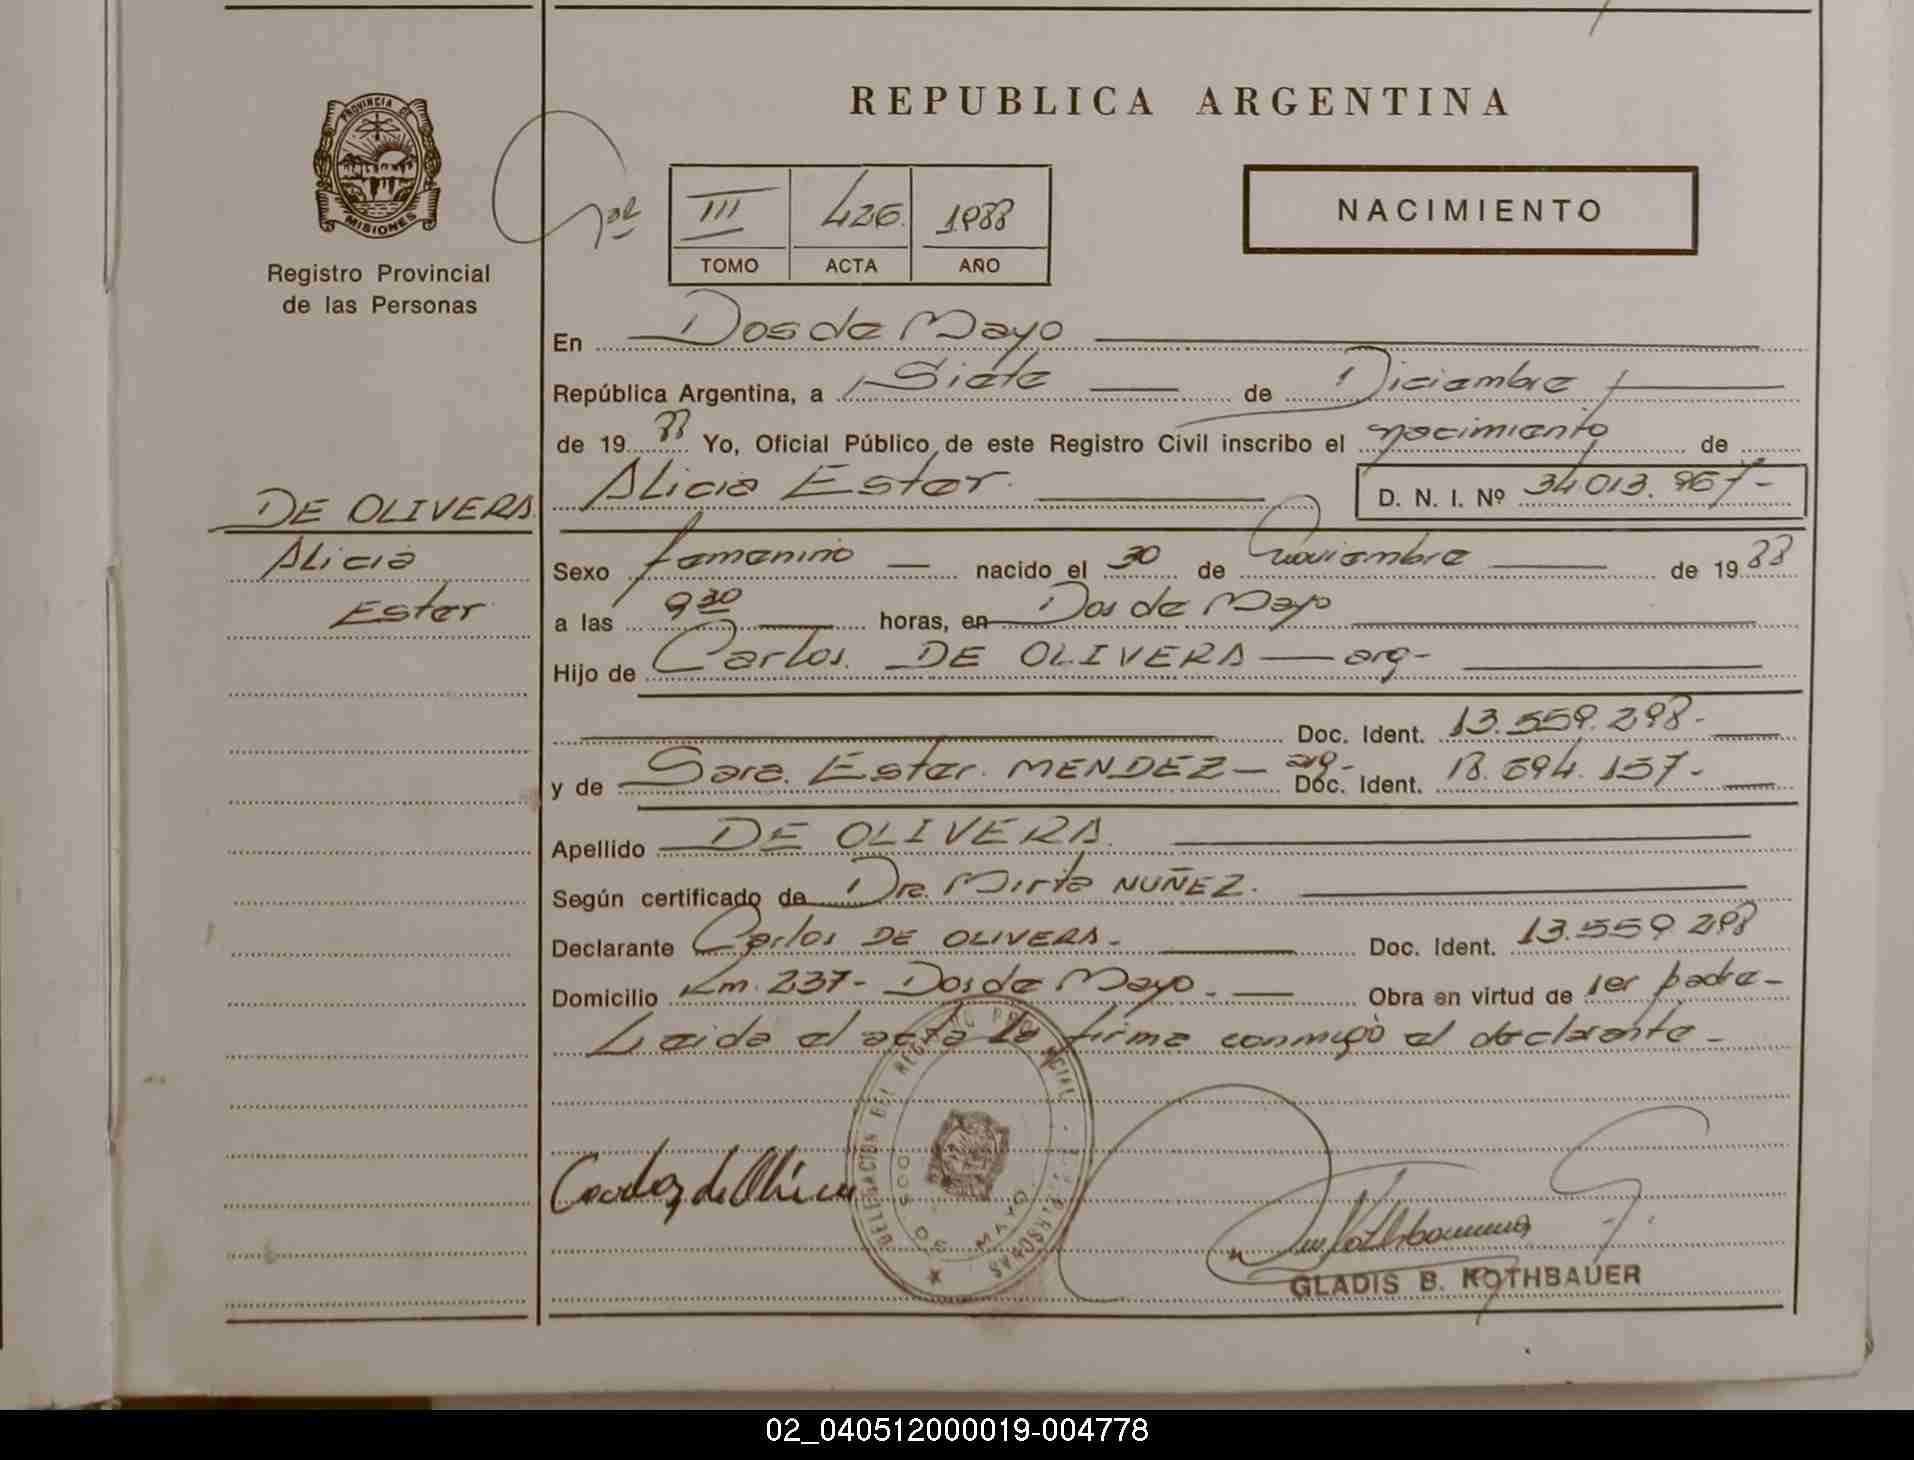 REPUBLICA ARGENTINA
PROVINCIA DE
MISIONES
Registro Provincial
de las Personas
III 426. 1988
TOMO ACTA AÑO
NACIMIENTO
En Dos de Mayo
República Argentina, a Siete de Diciembre
de 19 88 Yo, Oficial Público de este Registro Civil inscribo el nacimiento de
DE OLIVERA
Alicia
Ester
Alicia Ester. D. N. I. Nº 34013.967-
Sexo femenino nacido el 30 de Noviembre de 19 88
a las 9 30 horas, en Dos de Mayo
Hijo de Carlos. DE OLIVERA — arg-
Doc. Ident. 13.559.298-
y de Sara. Ester. MENDEZ — arg- Doc. Ident. 18.694.157-
Apellido DE OLIVERA.
Según certificado de Dra. Mirta NUÑEZ.
Declarante Carlos DE OLIVERA- Doc. Ident. 13.559 298
Domicilio Km. 237- Dos de Mayo- Obra en virtud de ser padre-
Leida el acta la firma conmigo el declarante-
DELEGACION DEL REGISTRO PROVINCIAL DE LAS PERSONAS
DOS DE MAYO
Carlos de Olivera
GLADIS B. KOTHBAUER
02_040512000019-004778